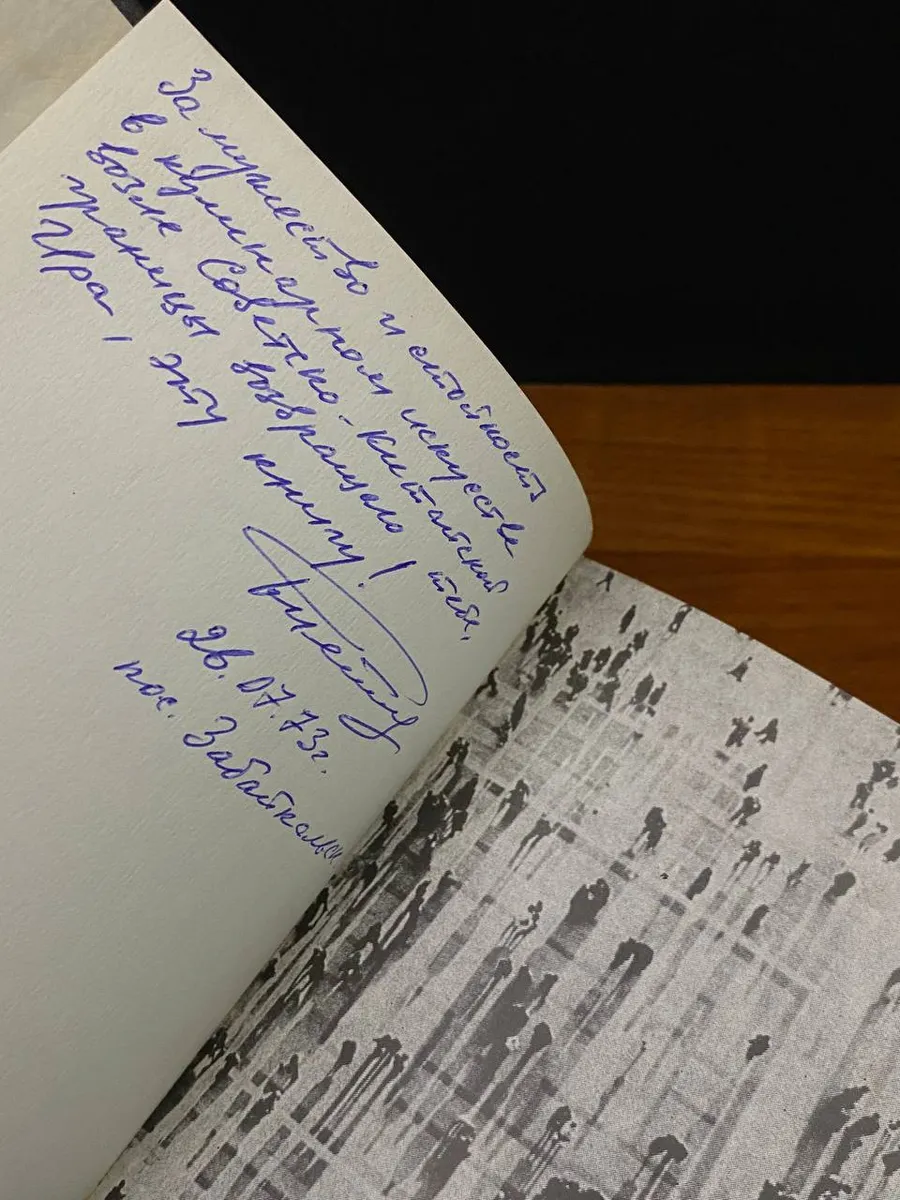 За мужество и стойкость
в кулинарном искусстве
возле Советско-Китайской
границы возвращаю тебе,
Ира, эту книгу!
26.07.73г.
пос. Забайкальск